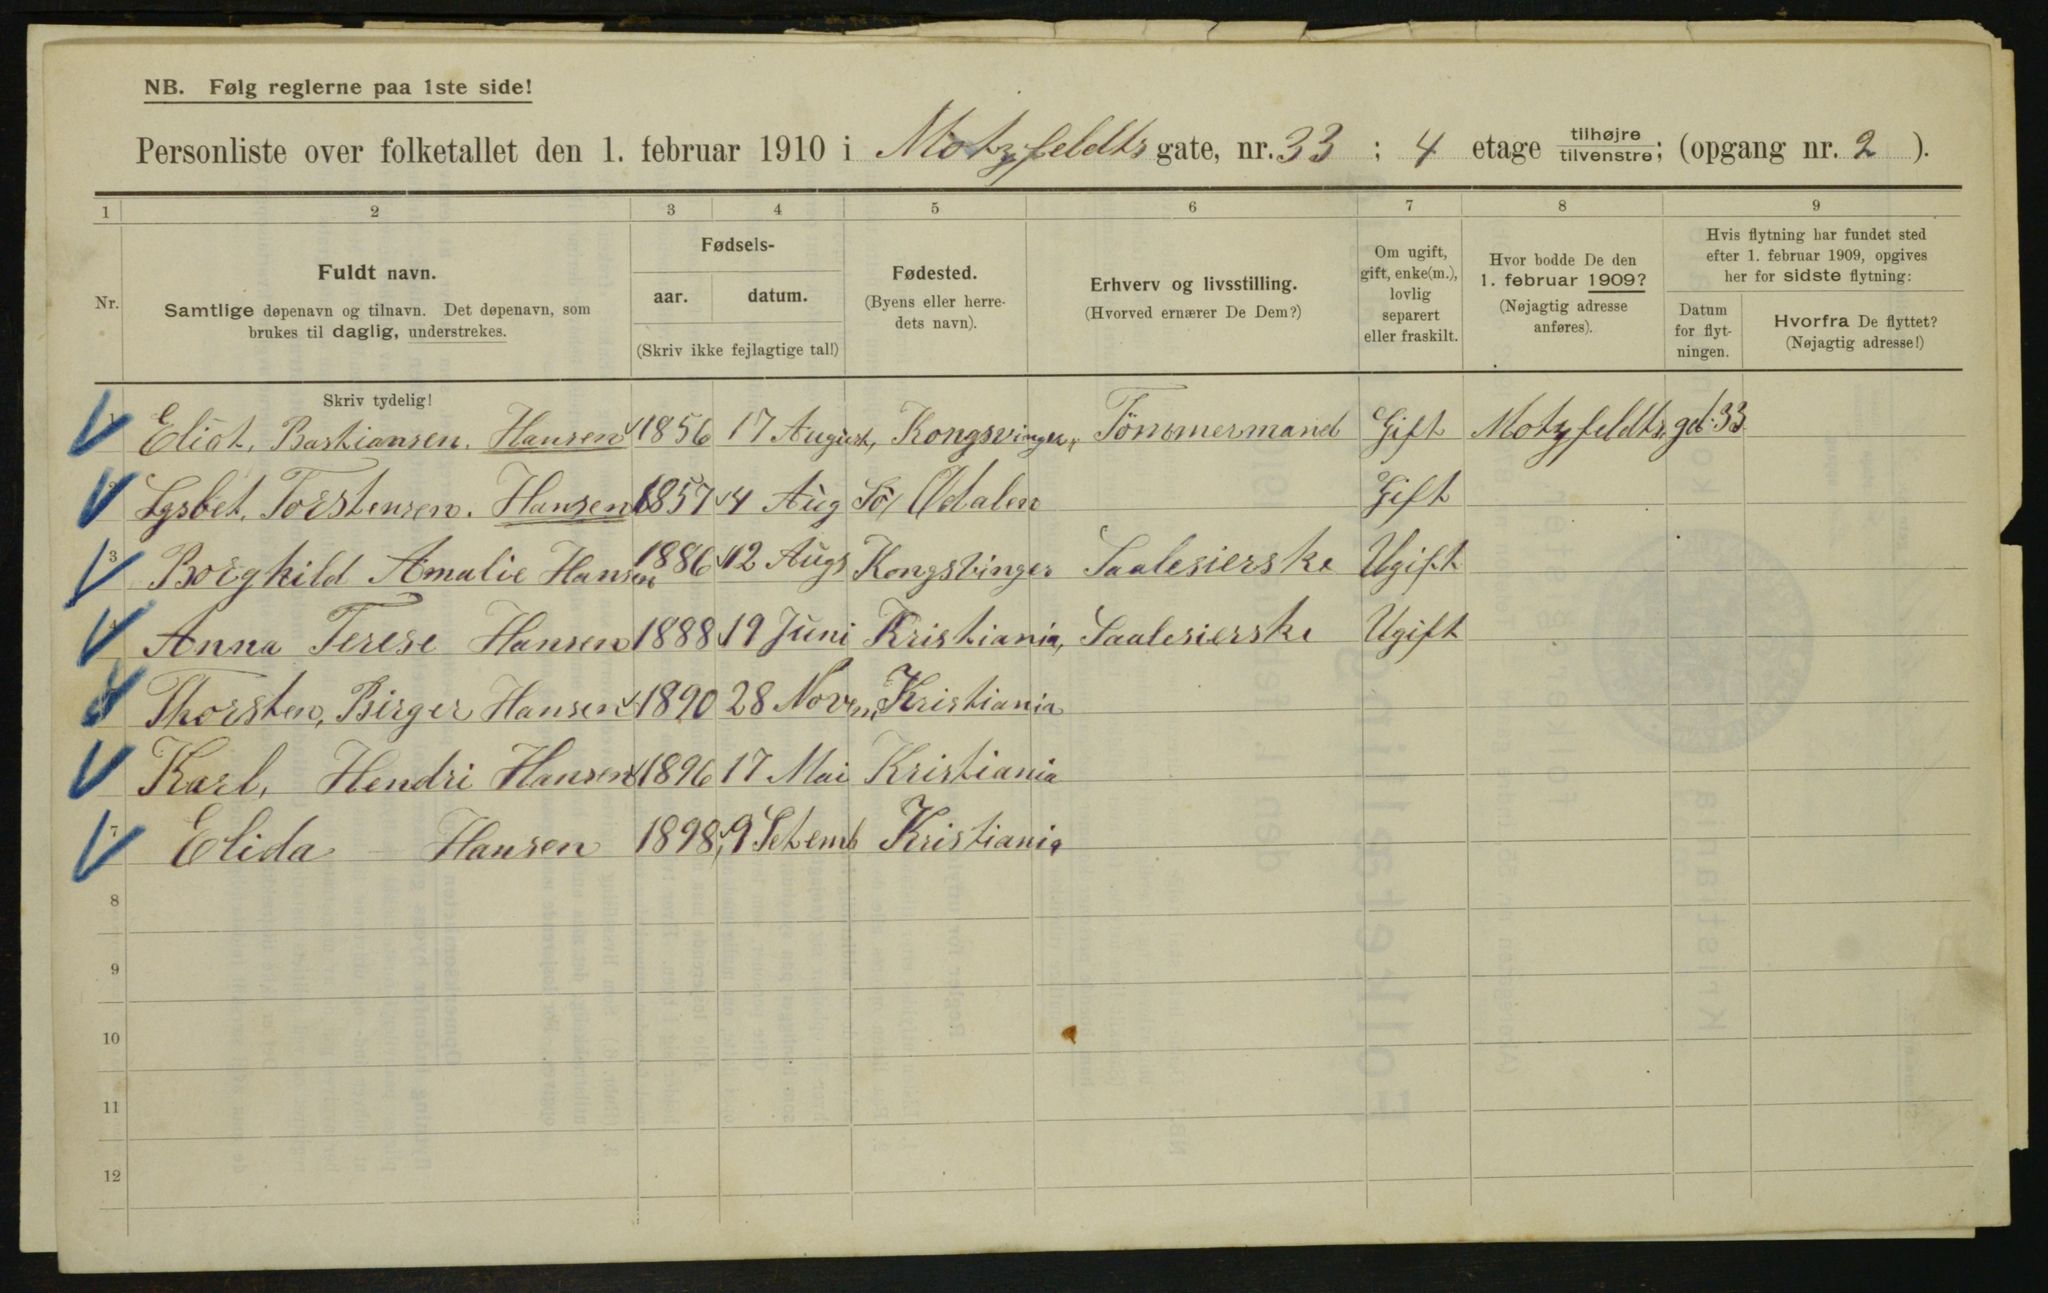 NB. Følg reglerne paa 1ste side!
Personliste over folketallet den 1. februar 1910 i Motzfeldts gate, nr. 33 ; 4 etage tilhøjre tilvenstre; (opgang nr. 2 ).
1 2 3 4 5 6 7 8 9
Nr.
Fuldt navn.
Samtlige døpenavn og tilnavn. Det døpenavn, som
brukes til daglig, understrekes.
Fødsels-
aar. datum.
(Skriv ikke fejlagtige tal!)
Fødested.
(Byens eller herre-
dets navn).
Erhverv og livsstilling.
(Hvorved ernærer De Dem?)
Om ugift,
gift, enke(m.),
lovlig
separert
eller fraskilt.
Hvor bodde De den
1. februar 1909?
(Nøjagtig adresse
anføres).
Hvis flytning har fundet sted
efter 1. februar 1909, opgives
her for sidste flytning:
Datum
for flyt-
ningen.
Hvorfra De flyttet?
(Nøjagtig adresse!)
Skriv tydelig!
1 Eliot, Bastiansen. Hansen 1856 17 August, Kongsvinger, Tömmermand Gift Motzfeldts gd. 33
2 Lysbet, Torstensen. Hansen 1857 4 Aug Sö/Odalen Gift
3 Borghild Amalie Hansen 1886 12 Augs Kongsvinger Saalesierske Ugift
4 Anna Terese Hansen 1888 19 Juni Kristiania, Saalesierske Ugift
Thorsten, Birger Hansen 1890 28 Novem Kristiania
Karl, Hendri Hansen 1896 17 Mai Kristiania
7 Elida Hansen 1898, 9 Setemb Kristiania
8
9
10
11
12